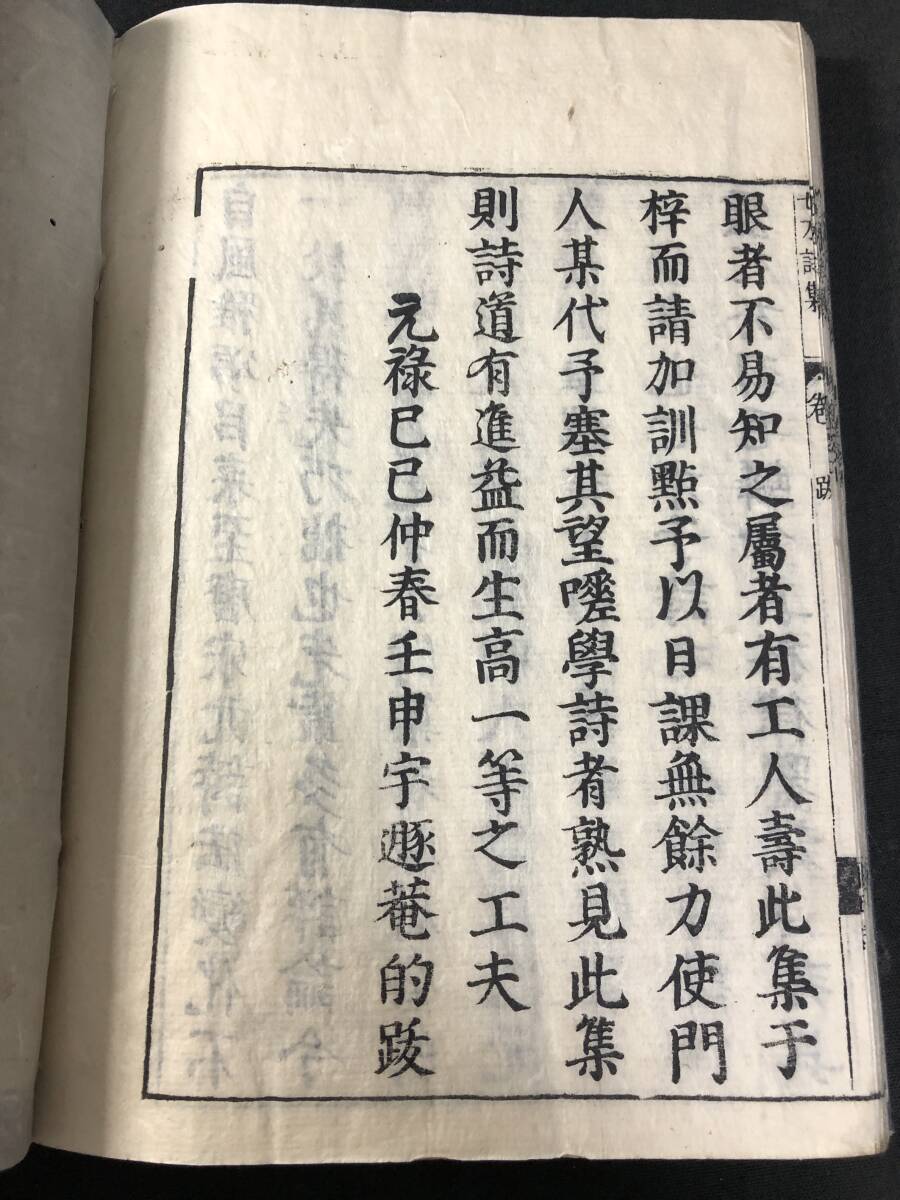 眼者不易知之屬者有工人壽此集于
梓而請加訓點予以日課無餘力使門
人某代予塞其望嗟學詩者熟見此集
則詩道有進益而生高一等之工夫
元祿己巳仲春壬申宇遯菴的跋
詩集
卷
跋